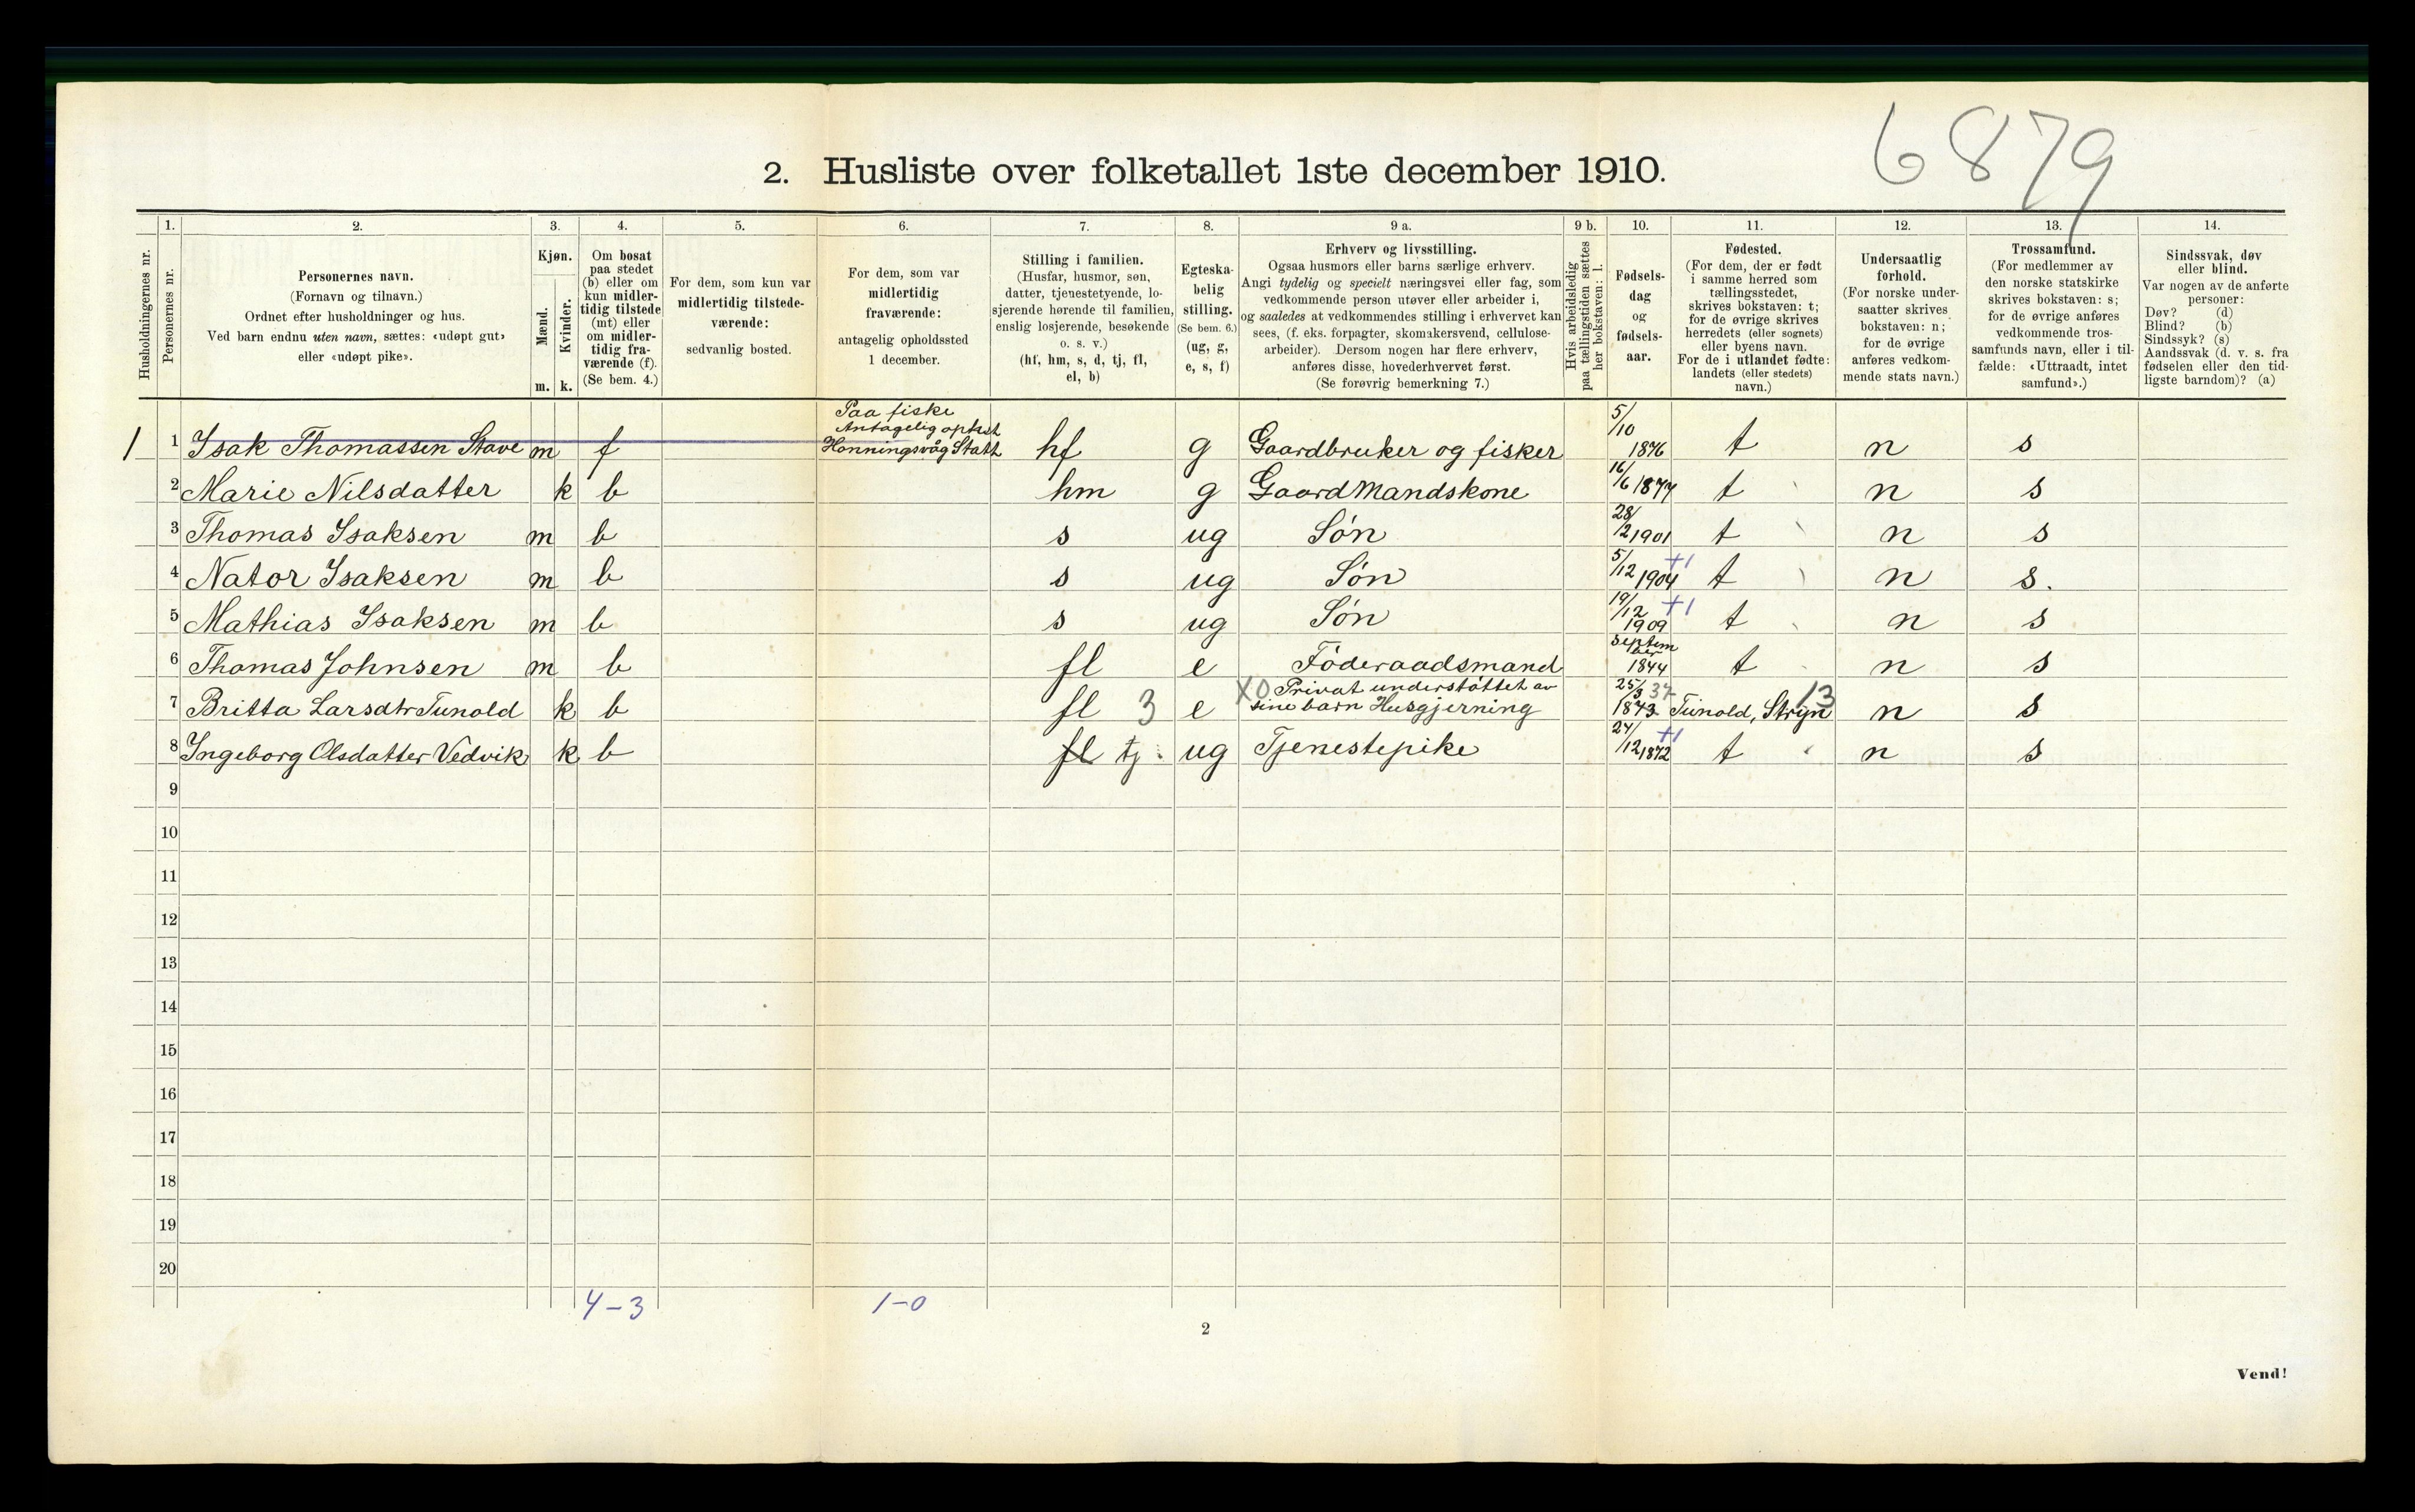 6879
2. Husliste over folketallet 1ste december 1910.
Husholdningernes nr.
1.
Personernes nr.
2.
Personernes navn.
(Fornavn og tilnavn.)
Ordnet efter husholdninger og hus.
Ved barn endnu uten navn, sættes: «udøpt gut»
eller «udøpt pike».
3.
Kjøn.
Mænd.
Kvinder.
m. k.
4.
Om bosat
paa stedet
(b) eller om
kun midler-
tidig tilstede
(mt) eller
om midler-
tidig fra-
værende (f).
(Se bem. 4.)
5.
For dem, som kun var
midlertidig tilstede-
værende:
sedvanlig bosted.
6.
For dem, som var
midlertidig
fraværende:
antagelig opholdssted
1 december.
7.
Stilling i familien.
(Husfar, husmor, søn,
datter, tjenestetyende, lo-
sjerende hørende til familien,
enslig losjerende, besøkende
o. s. v.)
(hf, hm, s, d, tj, fl,
el, b)
8.
Egteska-
belig
stilling.
(Se bem. 6.)
(ug, g,
e, s, f)
9 a.
Erhverv og livsstilling.
Ogsaa husmors eller barns særlige erhverv.
Angi tydelig og specielt næringsvei eller fag, som
vedkommende person utøver eller arbeider i,
og saaledes at vedkommendes stilling i erhvervet kan
sees, (f. eks. forpagter, skomakersvend, cellulose-
arbeider). Dersom nogen har flere erhverv,
anføres disse, hovederhvervet først.
(Se forøvrig bemerkning 7.)
9 b.
Hvis arbeidsledig
paa tællingstiden sættes
her bokstaven: l.
10.
Fødsels-
dag
og
fødsels-
aar.
11.
Fødested.
(For dem, der er født
i samme herred som
tællingsstedet,
skrives bokstaven: t;
for de øvrige skrives
herredets (eller sognets)
eller byens navn.
For de i utlandet fødte:
landets (eller stedets)
navn.)
12.
Undersaatlig
forhold.
(For norske under-
saatter skrives
bokstaven: n;
for de øvrige
anføres vedkom-
mende stats navn.)
13.
Trossamfund.
(For medlemmer av
den norske statskirke
skrives bokstaven: s;
for de øvrige anføres
vedkommende tros-
samfunds navn, eller i til-
fælde: «Uttraadt, intet
samfund».)
14.
Sindssvak, døv
eller blind.
Var nogen av de anførte
personer:
Døv? (d)
Blind? (b)
Sindssyk? (s)
Aandssvak (d. v. s. fra
fødselen eller den tid-
ligste barndom)? (a)
1 1 Isak Thomassen Stave m f Paa fiske Antagelig Honningsvåg Statt hf g Gaardbruker og fisker 5/10 1876 t n s
2 Marie Nilsdatter k b hm g Gaardmandskone 16/6 1877 t n s
3 Thomas Isaksen m b s ug Søn 28/2 1901 t n s
4 Nator Isaksen m b s ug Søn 5/12 1904 +1 t n s.
5 Mathias Isaksen m b s ug Søn 19/12 1909 +1 t n s
6 Thomas Johnsen m b fl e Føderaadsmand september 1844 t n s
7 Britta Larsdtr Tunold k b fl 3 e X0 Privat understøttet av sine barn Husgjerning 25/3 37 1843 Tunold, Stryn 13 n s
8 Ingeborg Olsdatter Vedvik k b fl tj. ug Tjenestepike 24/12 1872 +1 t n s
9
10
11
12
13
14
15
16
17
18
19
20
4-3 1-0
2
Vend!